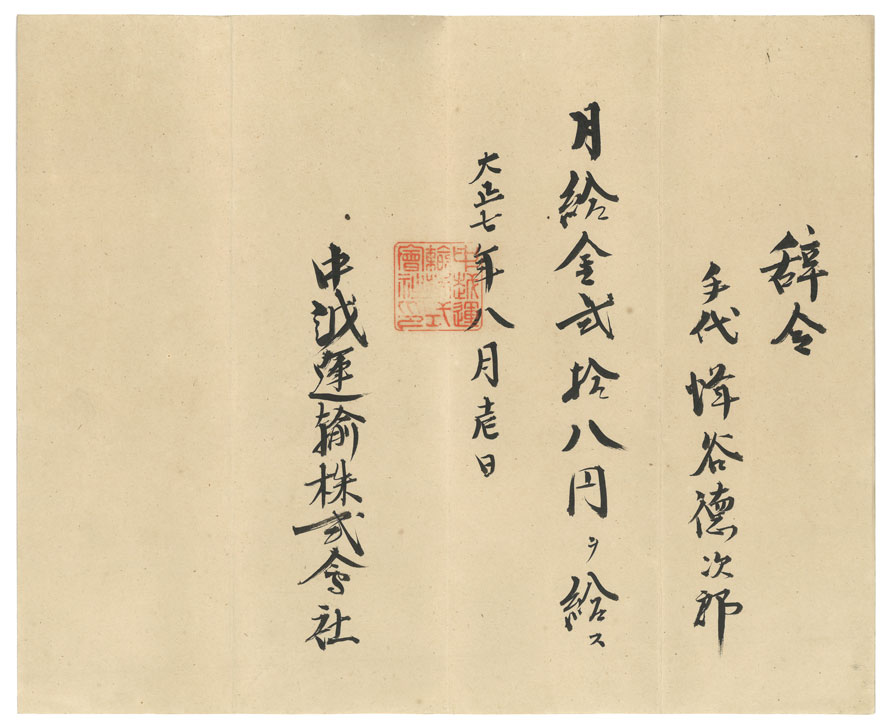 辞令
手代 谷德次郎
月給金弐拾八円ヲ給ス
大正七年八月壱日
中越運輸株式會社
中越運
輸株式
會社之印